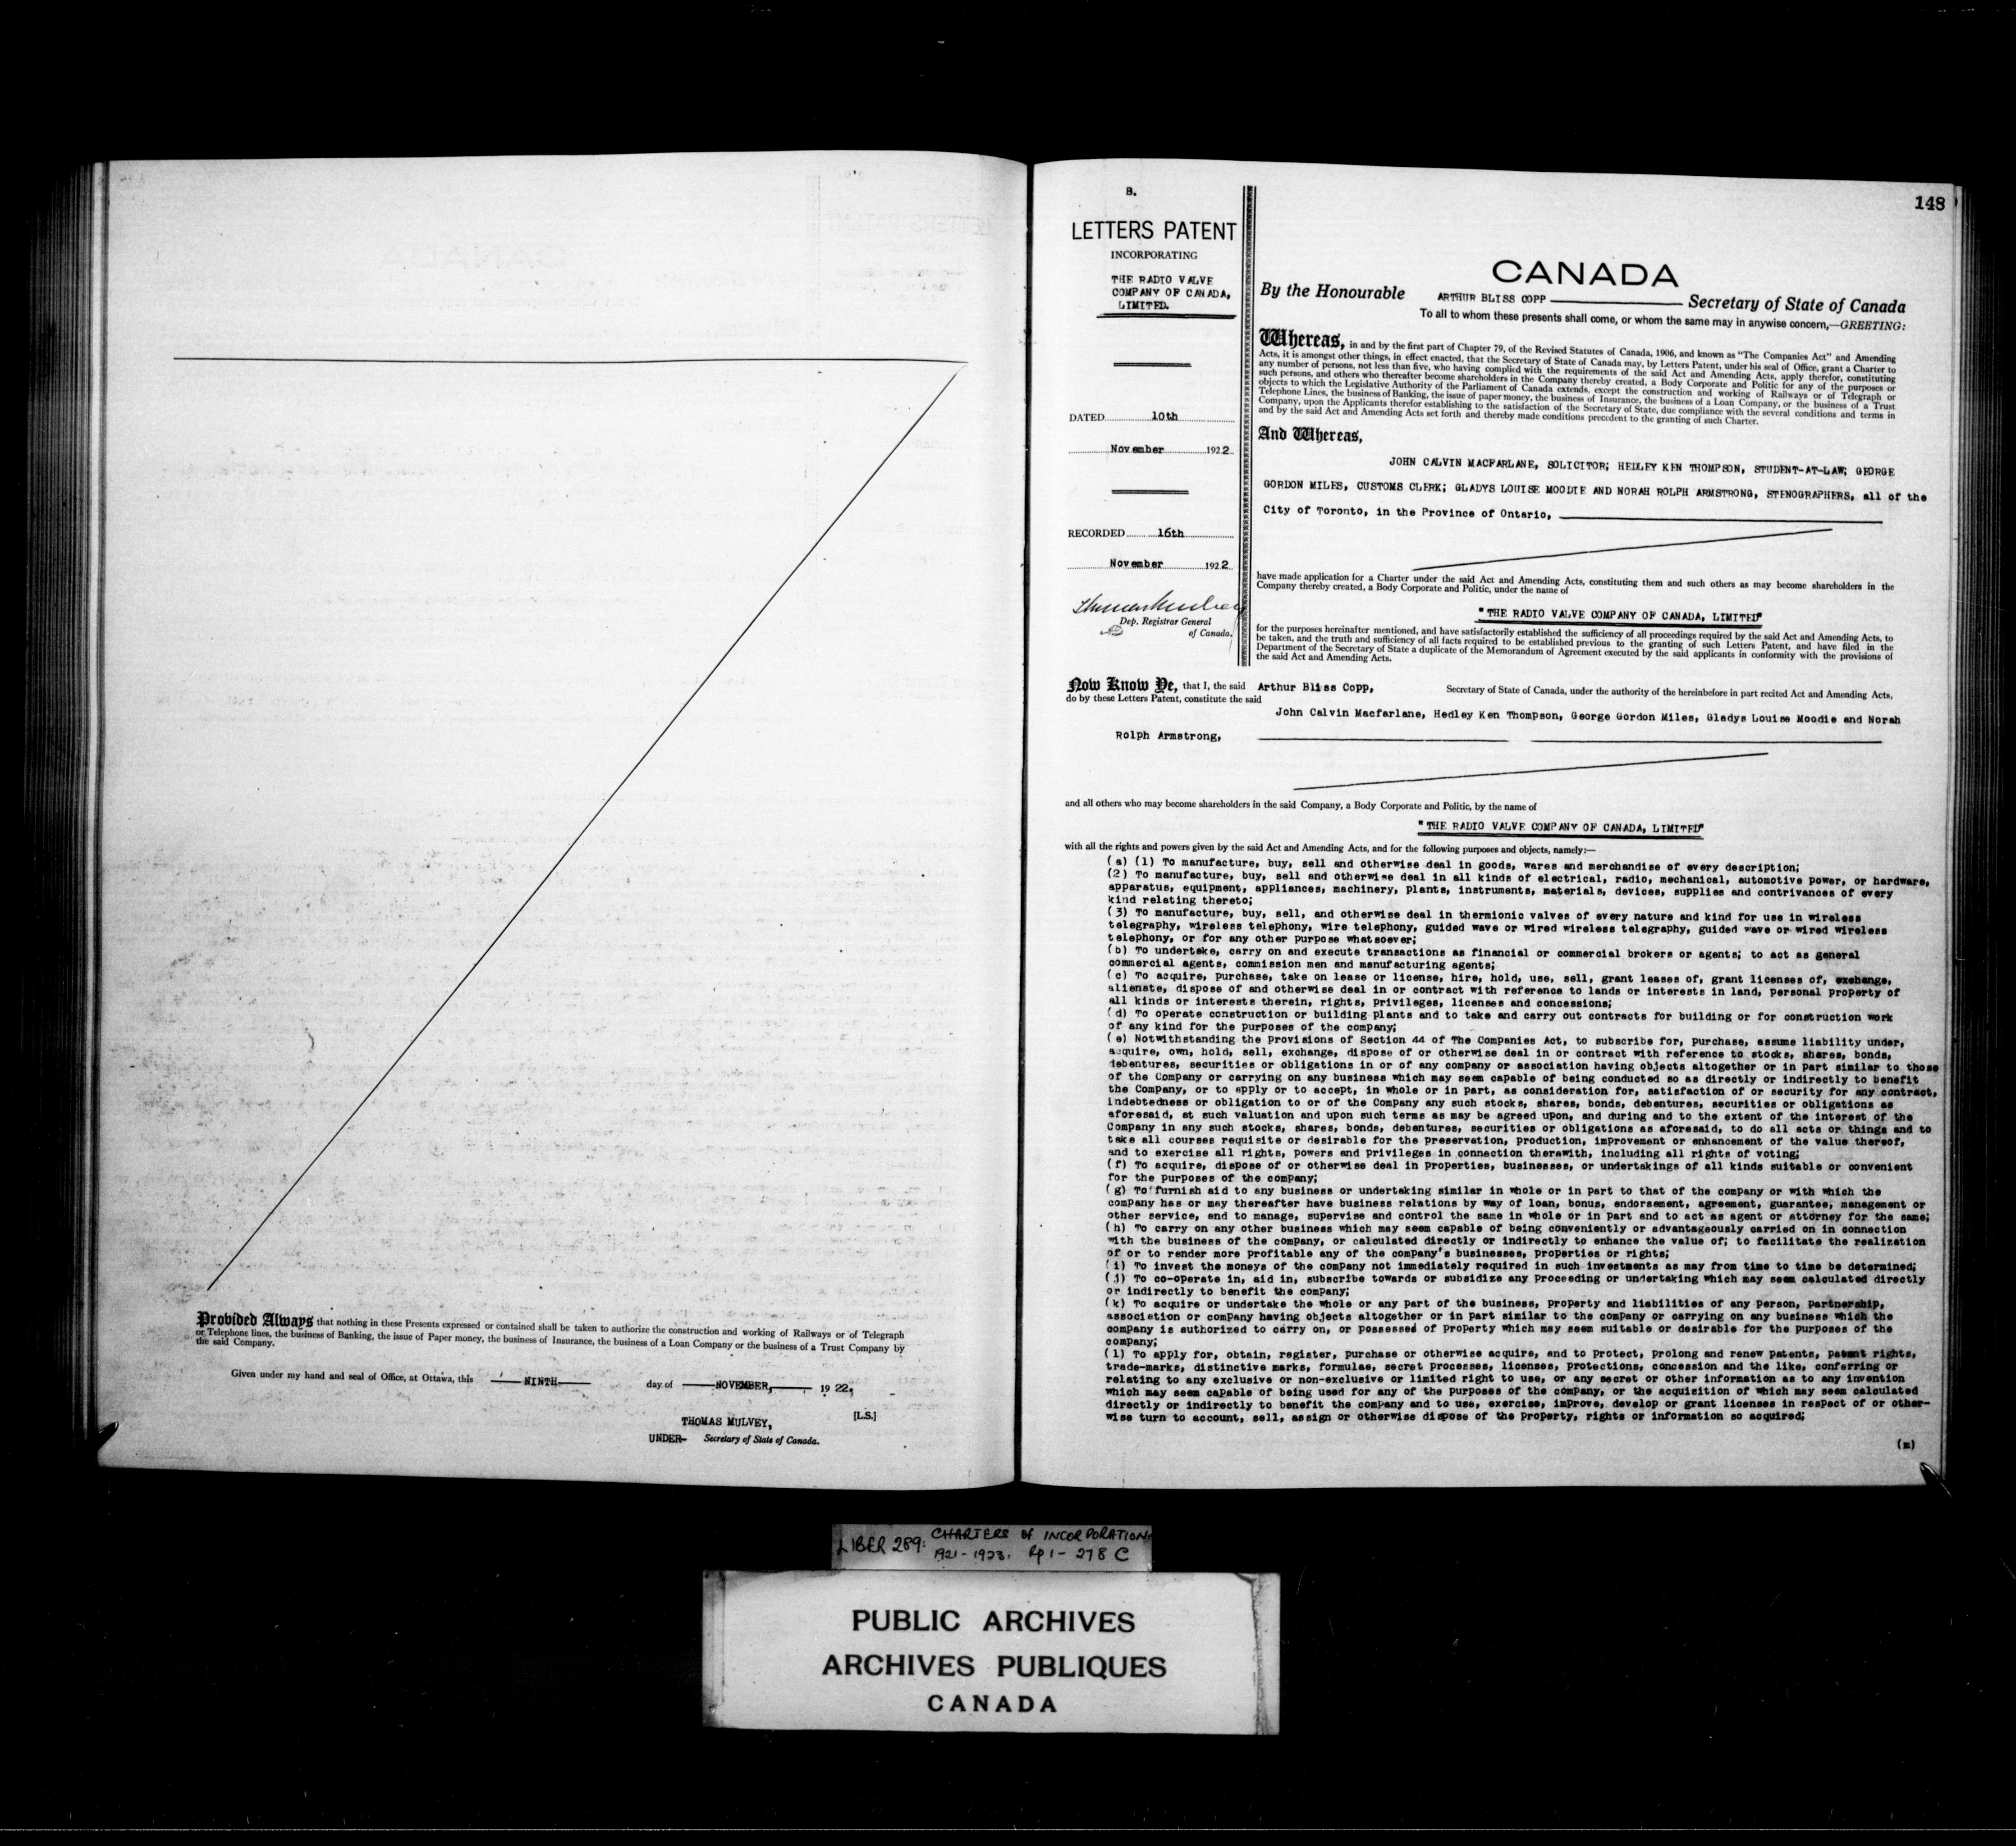 Provided Always that nothing in these Presents expressed or contained shall be taken to authorize the construction and working of Railways or of Telegraph
or Telephone lines, the business of Banking, the issue of Paper money, the business of Insurance, the business of a Loan Company or the business of a Trust Company by
the said Company.
Given under my hand and seal of Office, at Ottawa, this NINTH day of NOVEMBER, 1922,
THOMAS MULVEY, [L.S.]
UNDER- Secretary of State of Canada.
148
B.
LETTERS PATENT
INCORPORATING
THE RADIO VALVE
COMPANY OF CANADA,
LIMITED.
DATED 10th
November 1922
RECORDED 16th
November 1922
Dep. Registrar General
of Canada.
CANADA
By the Honourable ARTHUR BLISS COPP Secretary of State of Canada
To all to whom these presents shall come, or whom the same may in anywise concern,—GREETING:
Whereas, in and by the first part of Chapter 79, of the Revised Statutes of Canada, 1906, and known as "The Companies Act" and Amending
Acts, it is amongst other things, in effect enacted, that the Secretary of State of Canada may, by Letters Patent, under his seal of Office, grant a Charter to
any number of persons, not less than five, who having complied with the requirements of the said Act and Amending Acts, apply therefor, constituting
such persons, and others who thereafter become shareholders in the Company thereby created, a Body Corporate and Politic for any of the purposes or
objects to which the Legislative Authority of the Parliament of Canada extends, except the construction and working of Railways or of Telegraph or
Telephone Lines, the business of Banking, the issue of paper money, the business of Insurance, the business of a Loan Company, or the business of a Trust
Company, upon the Applicants therefor establishing to the satisfaction of the Secretary of State, due compliance with the several conditions and terms in
and by the said Act and Amending Acts set forth and thereby made conditions precedent to the granting of such Charter.
And Whereas,
JOHN CALVIN MACFARLANE, SOLICITOR; HEDLEY KEN THOMPSON, STUDENT-AT-LAW; GEORGE
GORDON MILES, CUSTOMS CLERK; GLADYS LOUISE MOODIE AND NORAH ROLPH ARMSTRONG, STENOGRAPHERS, all of the
City of Toronto, in the Province of Ontario,
have made application for a Charter under the said Act and Amending Acts, constituting them and such others as may become shareholders in the
Company thereby created, a Body Corporate and Politic, under the name of
"THE RADIO VALVE COMPANY OF CANADA, LIMITED"
for the purposes hereinafter mentioned, and have satisfactorily established the sufficiency of all proceedings required by the said Act and Amending Acts, to
be taken, and the truth and sufficiency of all facts required to be established previous to the granting of such Letters Patent, and have filed in the
Department of the Secretary of State a duplicate of the Memorandum of Agreement executed by the said applicants in conformity with the provisions of
the said Act and Amending Acts.
Now Know Ye, that I, the said Arthur Bliss Copp, Secretary of State of Canada, under the authority of the hereinbefore in part recited Act and Amending Acts,
do by these Letters Patent, constitute the said
John Calvin Macfarlane, Hedley Ken Thompson, George Gordon Miles, Gladys Louise Moodie and Norah
Rolph Armstrong,
and all others who may become shareholders in the said Company, a Body Corporate and Politic, by the name of
"THE RADIO VALVE COMPANY OF CANADA, LIMITED"
with all the rights and powers given by the said Act and Amending Acts, and for the following purposes and objects, namely:—
(a) (1) To manufacture, buy, sell and otherwise deal in goods, wares and merchandise of every description;
(2) To manufacture, buy, sell and otherwise deal in all kinds of electrical, radio, mechanical, automotive power, or hardware,
apparatus, equipment, appliances, machinery, plants, instruments, materials, devices, supplies and contrivances of every
kind relating thereto;
(3) To manufacture, buy, sell, and otherwise deal in thermionic valves of every nature and kind for use in wireless
telegraphy, wireless telephony, wire telephony, guided wave or wired wireless telegraphy, guided wave or wired wireless
telephony, or for any other purpose whatsoever;
(b) To undertake, carry on and execute transactions as financial or commercial brokers or agents; to act as general
commercial agents, commission men and manufacturing agents;
(c) To acquire, purchase, take on lease or license, hire, hold, use, sell, grant leases of, grant licenses of, exchange,
alienate, dispose of and otherwise deal in or contract with reference to lands or interests in land, personal property of
all kinds or interests therein, rights, privileges, licenses and concessions;
(d) To operate construction or building plants and to take and carry out contracts for building or for construction work
of any kind for the purposes of the company;
(e) Notwithstanding the provisions of Section 44 of The Companies Act, to subscribe for, purchase, assume liability under,
acquire, own, hold, sell, exchange, dispose of or otherwise deal in or contract with reference to stocks, shares, bonds,
debentures, securities or obligations in or of any company or association having objects altogether or in part similar to those
of the Company or carrying on any business which may seem capable of being conducted so as directly or indirectly to benefit
the Company, or to apply or to accept, in whole or in part, as consideration for, satisfaction of or security for any contract,
indebtedness or obligation to or of the Company any such stocks, shares, bonds, debentures, securities or obligations as
aforesaid, at such valuation and upon such terms as may be agreed upon, and during and to the extent of the interest of the
Company in any such stocks, shares, bonds, debentures, securities or obligations as aforesaid, to do all acts or things and to
take all courses requisite or desirable for the preservation, production, improvement or enhancement of the value thereof,
and to exercise all rights, powers and privileges in connection therewith, including all rights of voting;
(f) To acquire, dispose of or otherwise deal in properties, businesses, or undertakings of all kinds suitable or convenient
for the purposes of the company;
(g) To furnish aid to any business or undertaking similar in whole or in part to that of the company or with which the
company has or may thereafter have business relations by way of loan, bonus, endorsement, agreement, guarantee, management or
other service, and to manage, supervise and control the same in whole or in part and to act as agent or attorney for the same;
(h) To carry on any other business which may seem capable of being conveniently or advantageously carried on in connection
with the business of the company, or calculated directly or indirectly to enhance the value of; to facilitate the realization
of or to render more profitable any of the company's businesses, properties or rights;
(i) To invest the moneys of the company not immediately required in such investments as may from time to time be determined;
(j) To co-operate in, aid in, subscribe towards or subsidize any proceeding or undertaking which may seem calculated directly
or indirectly to benefit the company;
(k) To acquire or undertake the whole or any part of the business, property and liabilities of any person, partnership,
association or company having objects altogether or in part similar to the company or carrying on any business which the
company is authorized to carry on, or possessed of property which may seem suitable or desirable for the purposes of the
company;
(l) To apply for, obtain, register, purchase or otherwise acquire, and to protect, prolong and renew patents, patent rights,
trade-marks, distinctive marks, formulae, secret processes, licenses, protections, concession and the like, conferring or
relating to any exclusive or non-exclusive or limited right to use, or any secret or other information as to any invention
which may seem capable of being used for any of the purposes of the company, or the acquisition of which may seem calculated
directly or indirectly to benefit the company and to use, exercise, improve, develop or grant licenses in respect of or other-
wise turn to account, sell, assign or otherwise dispose of the property, rights or information so acquired;
(m)
LIBER 289: CHARTERS of INCORPORATION
1921-1923. pp 1-278 C
PUBLIC ARCHIVES
ARCHIVES PUBLIQUES
CANADA